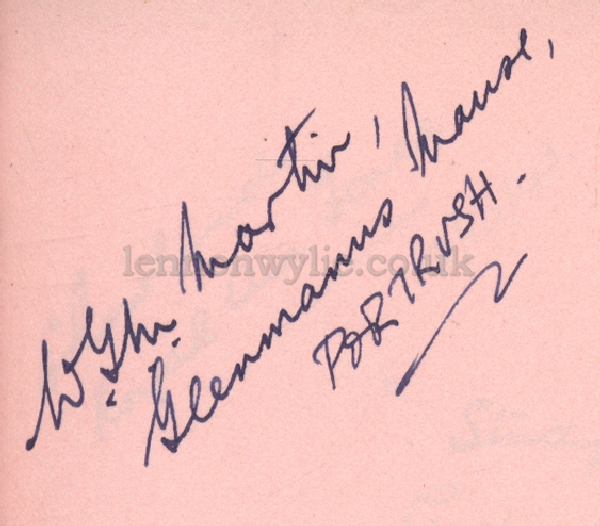 W. G. M. Martin,
Glenmanus Manse,
PORTRUSH.
lennonwylie.co.uk